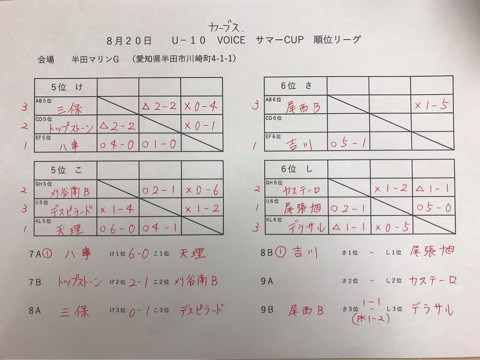 カーブス
8月20日 U-10 VOICE サマーCUP 順位リーグ
会場 半田マリンG (愛知県半田市川崎町4-1-1)
5位 け
3 AB5位 三保 △2-2 ×0-4
2 CD5位 トップストーン △2-2 ×0-1
1 EF5位 八事 ○4-0 ○1-0
6位 さ
3 AB6位 尾西B ×1-5
CD6位
1 EF6位 吉川 ○5-1
5位 こ
2 GH5位 刈谷南B ○2-1 ×0-6
3 IJ5位 デスピラード ×1-4 ×1-2
1 KL5位 天理 ○6-0 ○4-1
6位 し
2 GH6位 カステーロ ×1-2 △1-1
1 IJ6位 尾張旭 ○2-1 ○5-0
3 KL6位 デラサル △1-1 ×0-5
7A ① 八事 け1位 6-0 こ1位 天理
7B トップストーン け2位 2-1 こ2位 刈谷南B
8A 三保 け3位 0-1 こ3位 デスピラード
8B ① 吉川 さ1位 - し1位 尾張旭
9A - し2位 カステーロ
9B 尾西B さ3位 1-1 し3位 デラサル
(PK1-2)